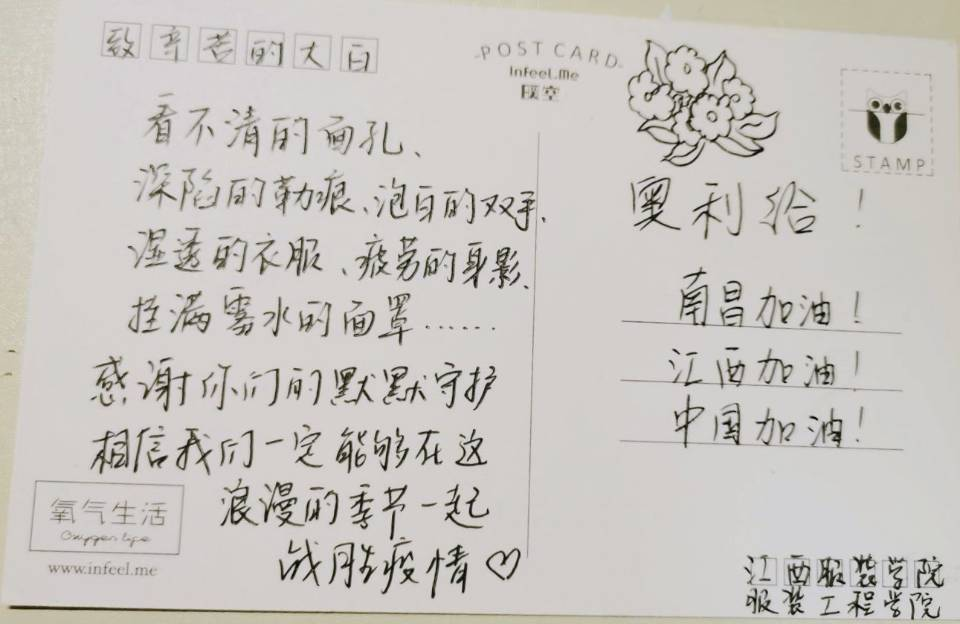 致辛苦的大白
POST CARD
Infeel.Me
璞空
STAMP
看不清的面孔、
深陷的勒痕、泡白的双手、
湿透的衣服、疲劳的身影、
挂满雾水的面罩……
感谢你们的默默守护
相信我们一定能够在这
浪漫的季节一起
战胜疫情♡
奥利给!
南昌加油!
江西加油!
中国加油!
氧气生活
Oxygen life
www.infeel.me
江西服装学院
服装工程学院